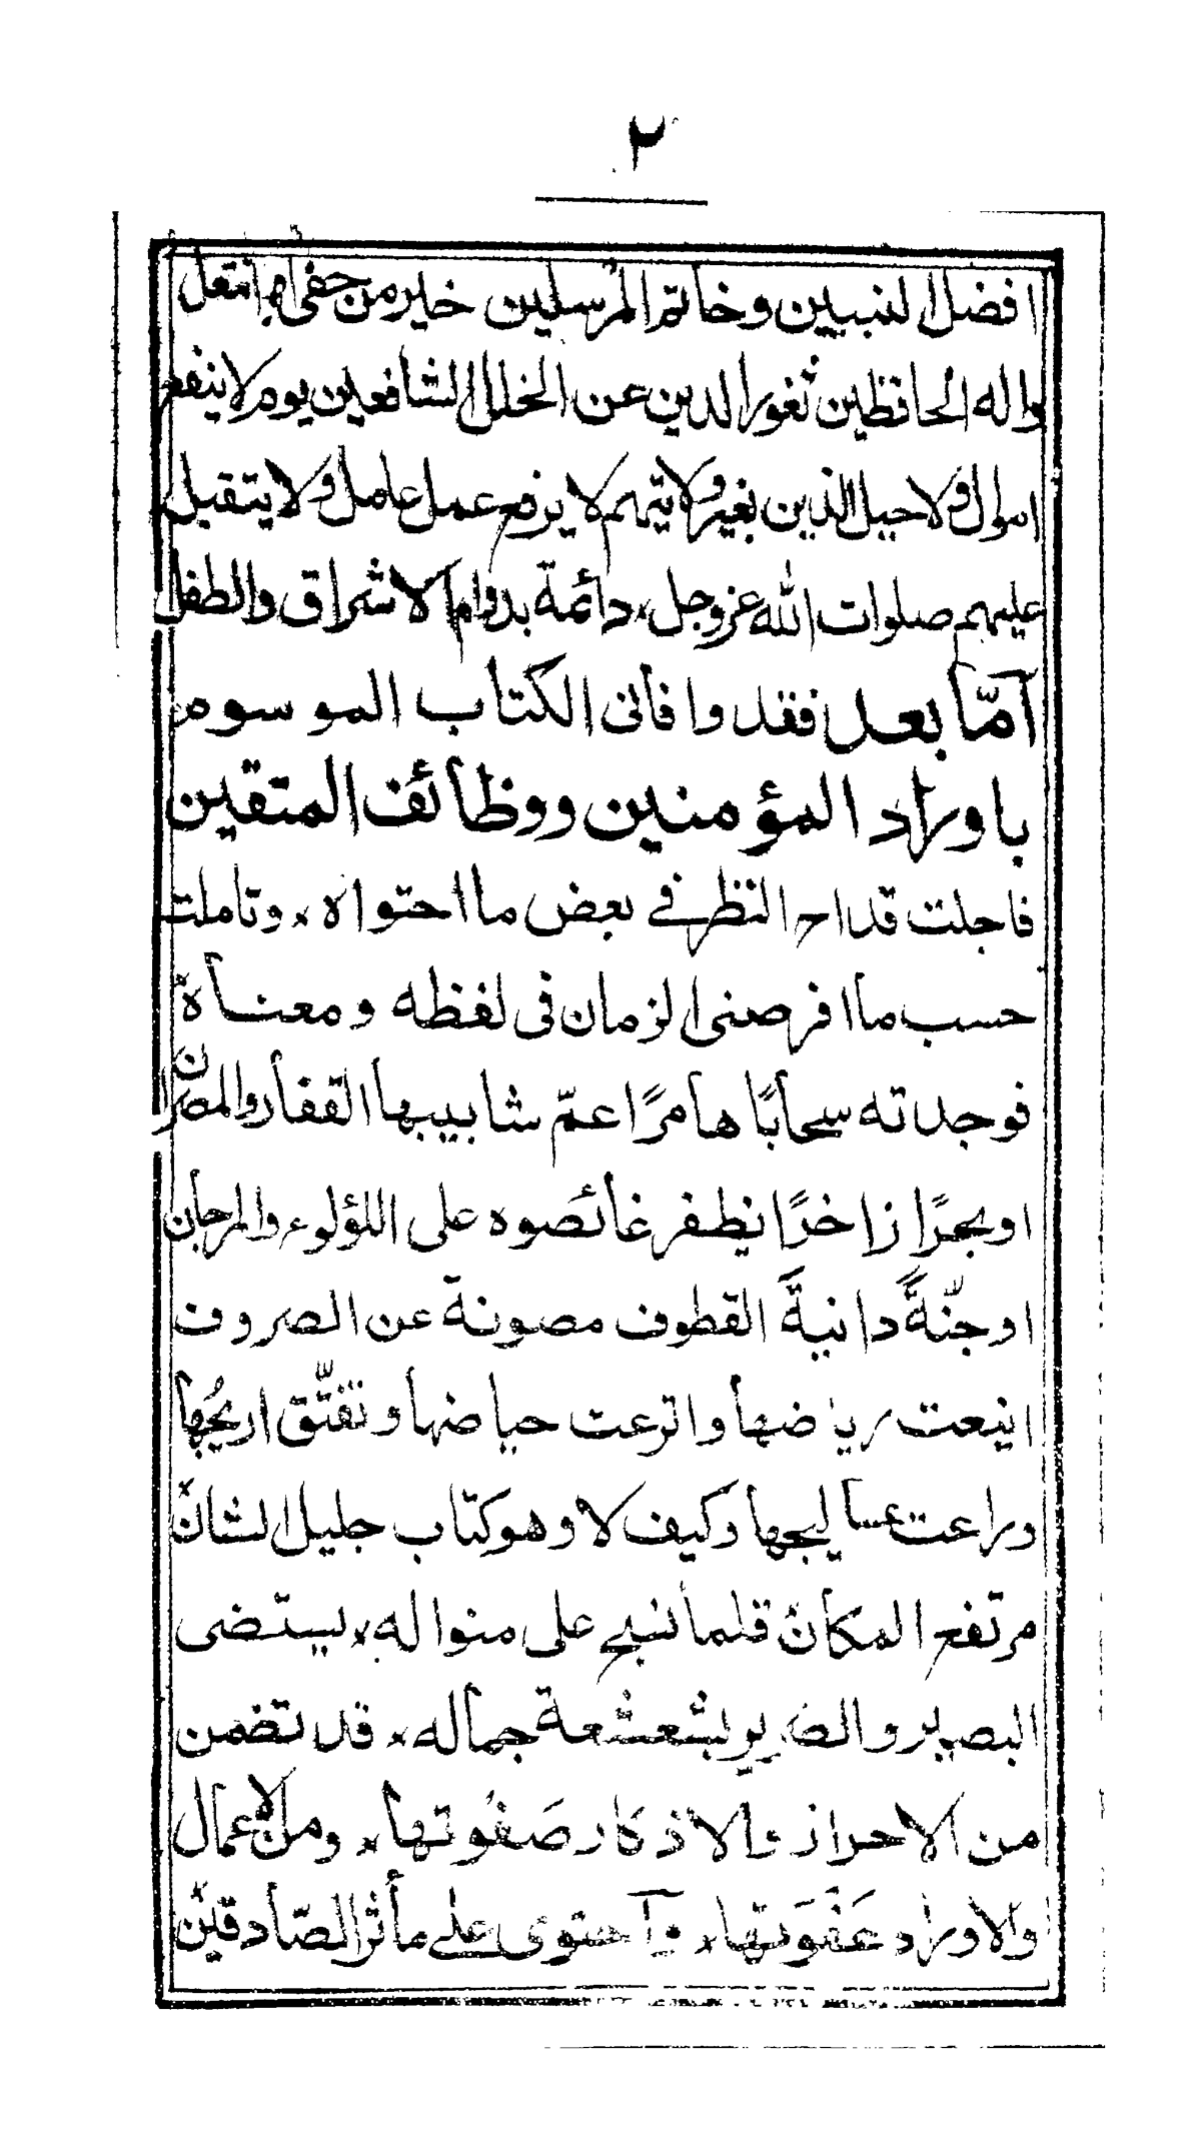 ٢
افضل النبيين وخاتم المرسلين خير من حفى او انتعل
واله الحافظين ثغور الدين عن الخلل الشافعين يوم لا ينفع
اموال ولا حيل الذين بغير ولايتهم لا يرفع عمل عامل ولا يتقبل
عليهم صلوات الله عز وجل، دائمة بدوام الاشراق والطفل
آمّا بعد فقد وافانى الكتاب الموسوم
باوراد المؤمنين ووظائف المتقين
فاجلت قداح النظر في بعض ما احتواه، وتاملت
حسب ما افرصنى الزمان فى لفظه ومعناه
فوجدته سحابًا هامرًا عمّ شابيبها القفار والمصران
او بحرًا زاخرًا يظفر غائصوه على اللؤلوء والمرجان
او جنّةً دانيةً القطوف مصونة عن الصروف
اينعت رياضها واترعت حياضها وتفتّق اريجُها
وراعت عساليجها وكيف لا وهو كتاب جليل الشان
مرتفع المكان قلما نسج على منواله، يستضى
البصير والضرير بشعشعة جماله، قد تضمن
من الاحراز والاذكار صَفوتها، ومن الاعمال
والاوراد عَفْوَتها، وآحتوى على مأثر الصّادقين